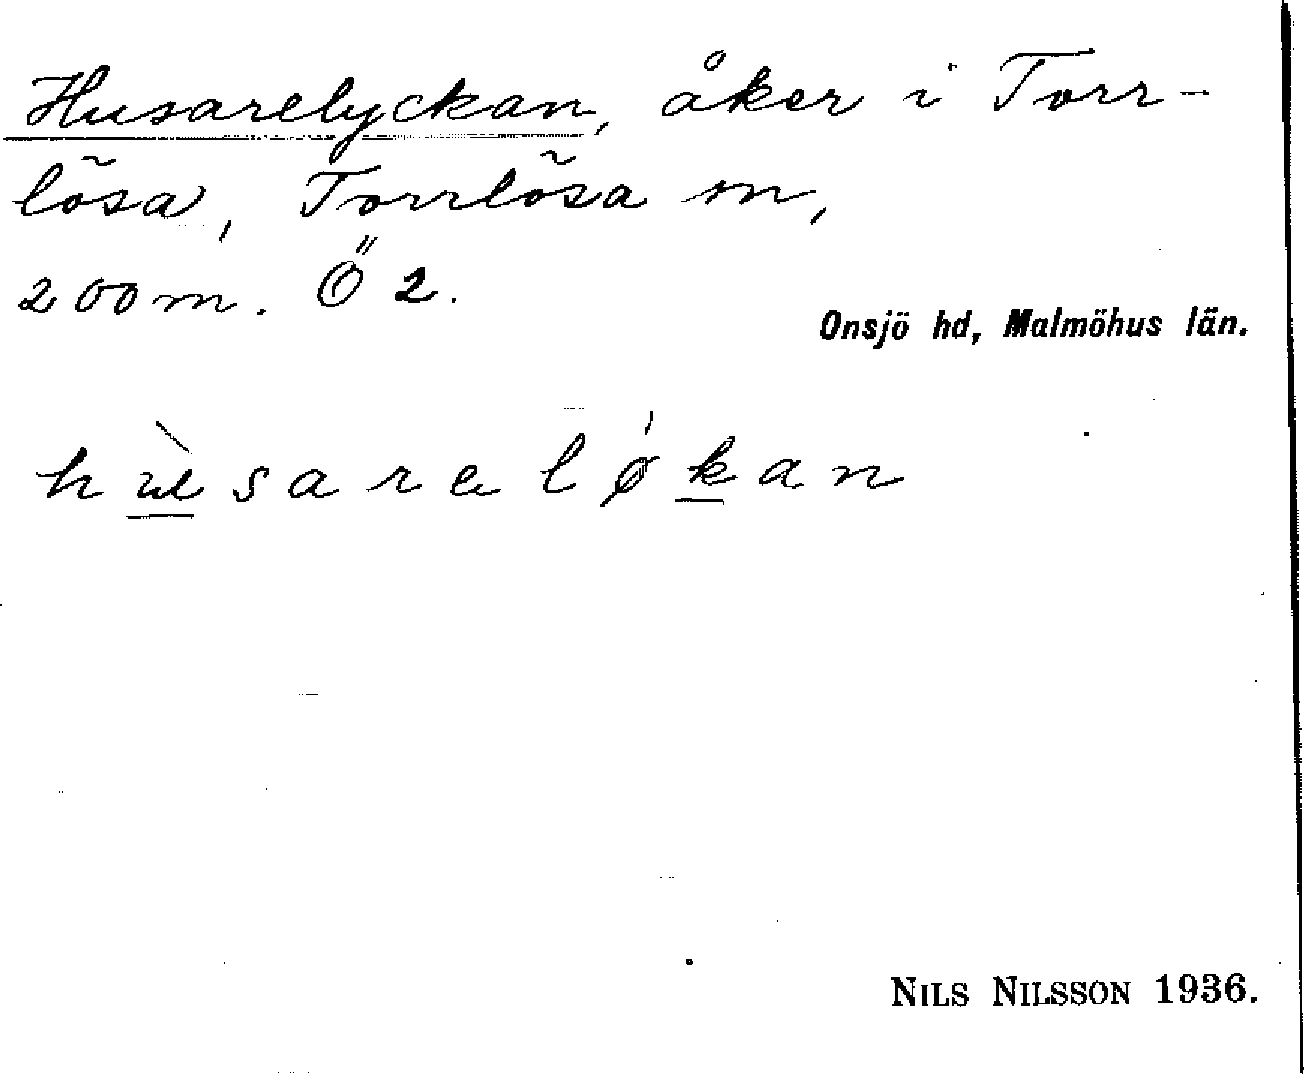 Husarelyckan, åker i Torr-
lösa, Torrlösa sn,
200 m. Ö 2.
Onsjö hd, Malmöhus län.
hùsarelǿkan
NILS NILSSON 1936.